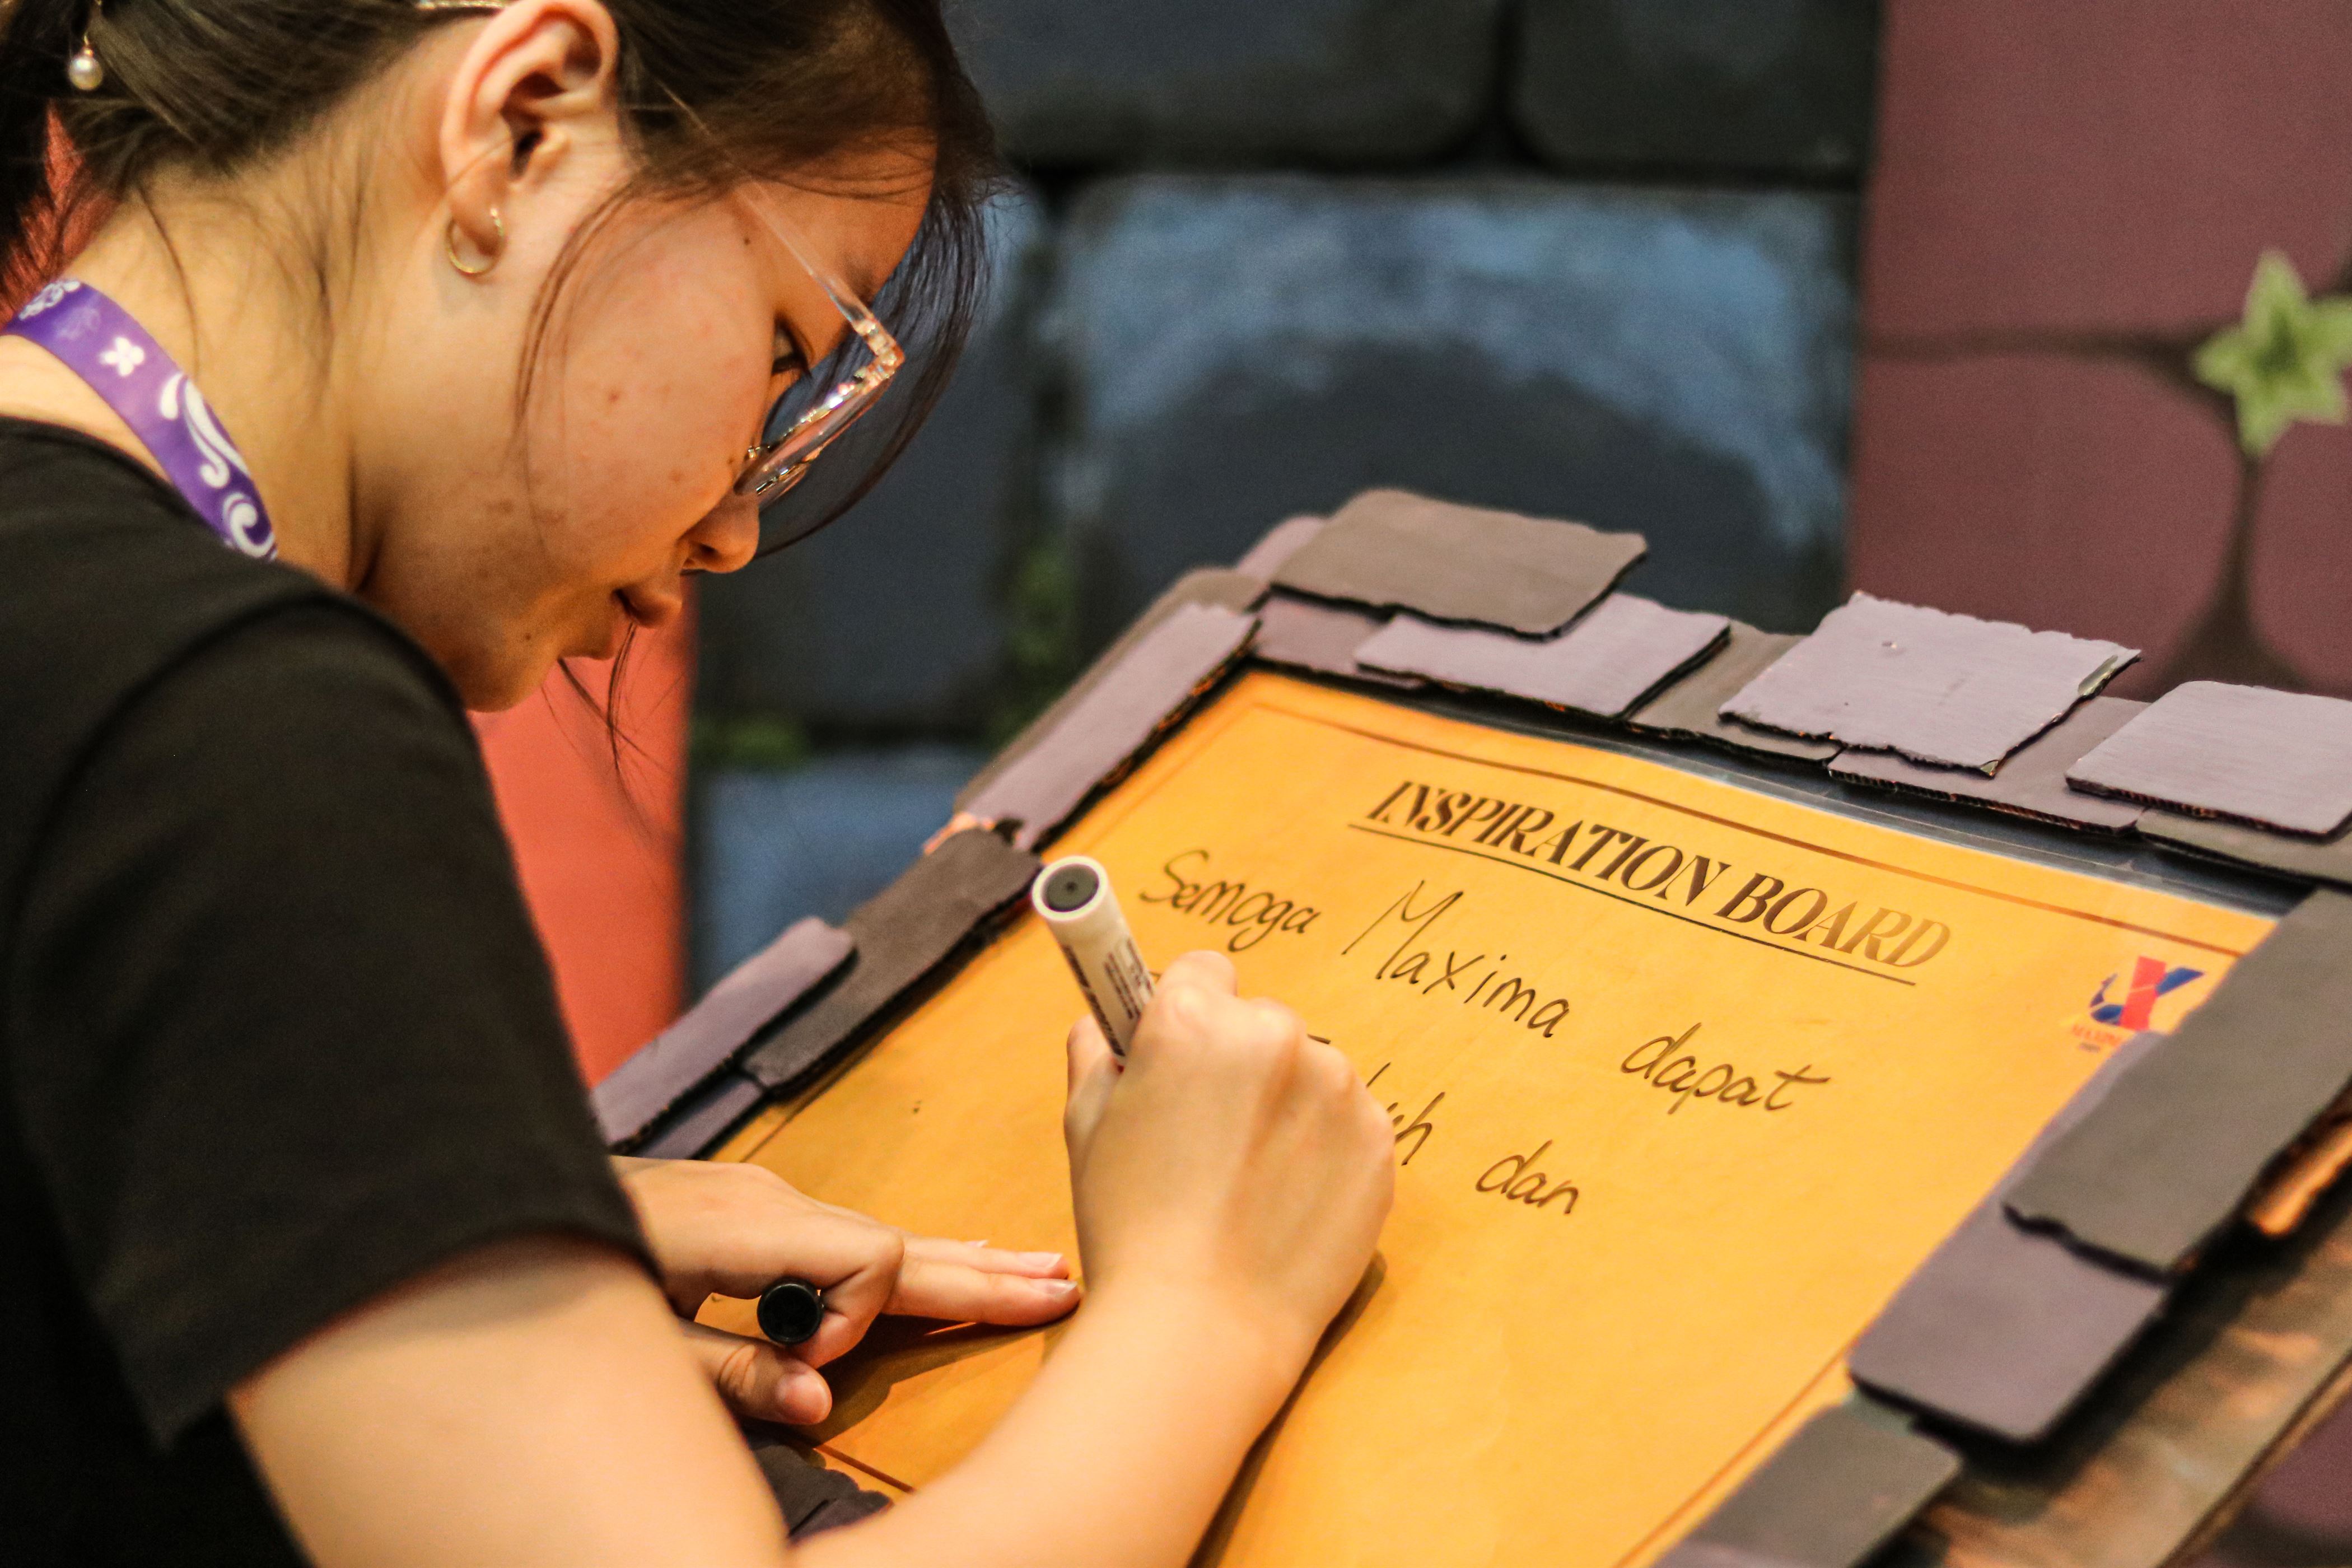 INSPIRATION BOARD
Semoga Maxima dapat
dan